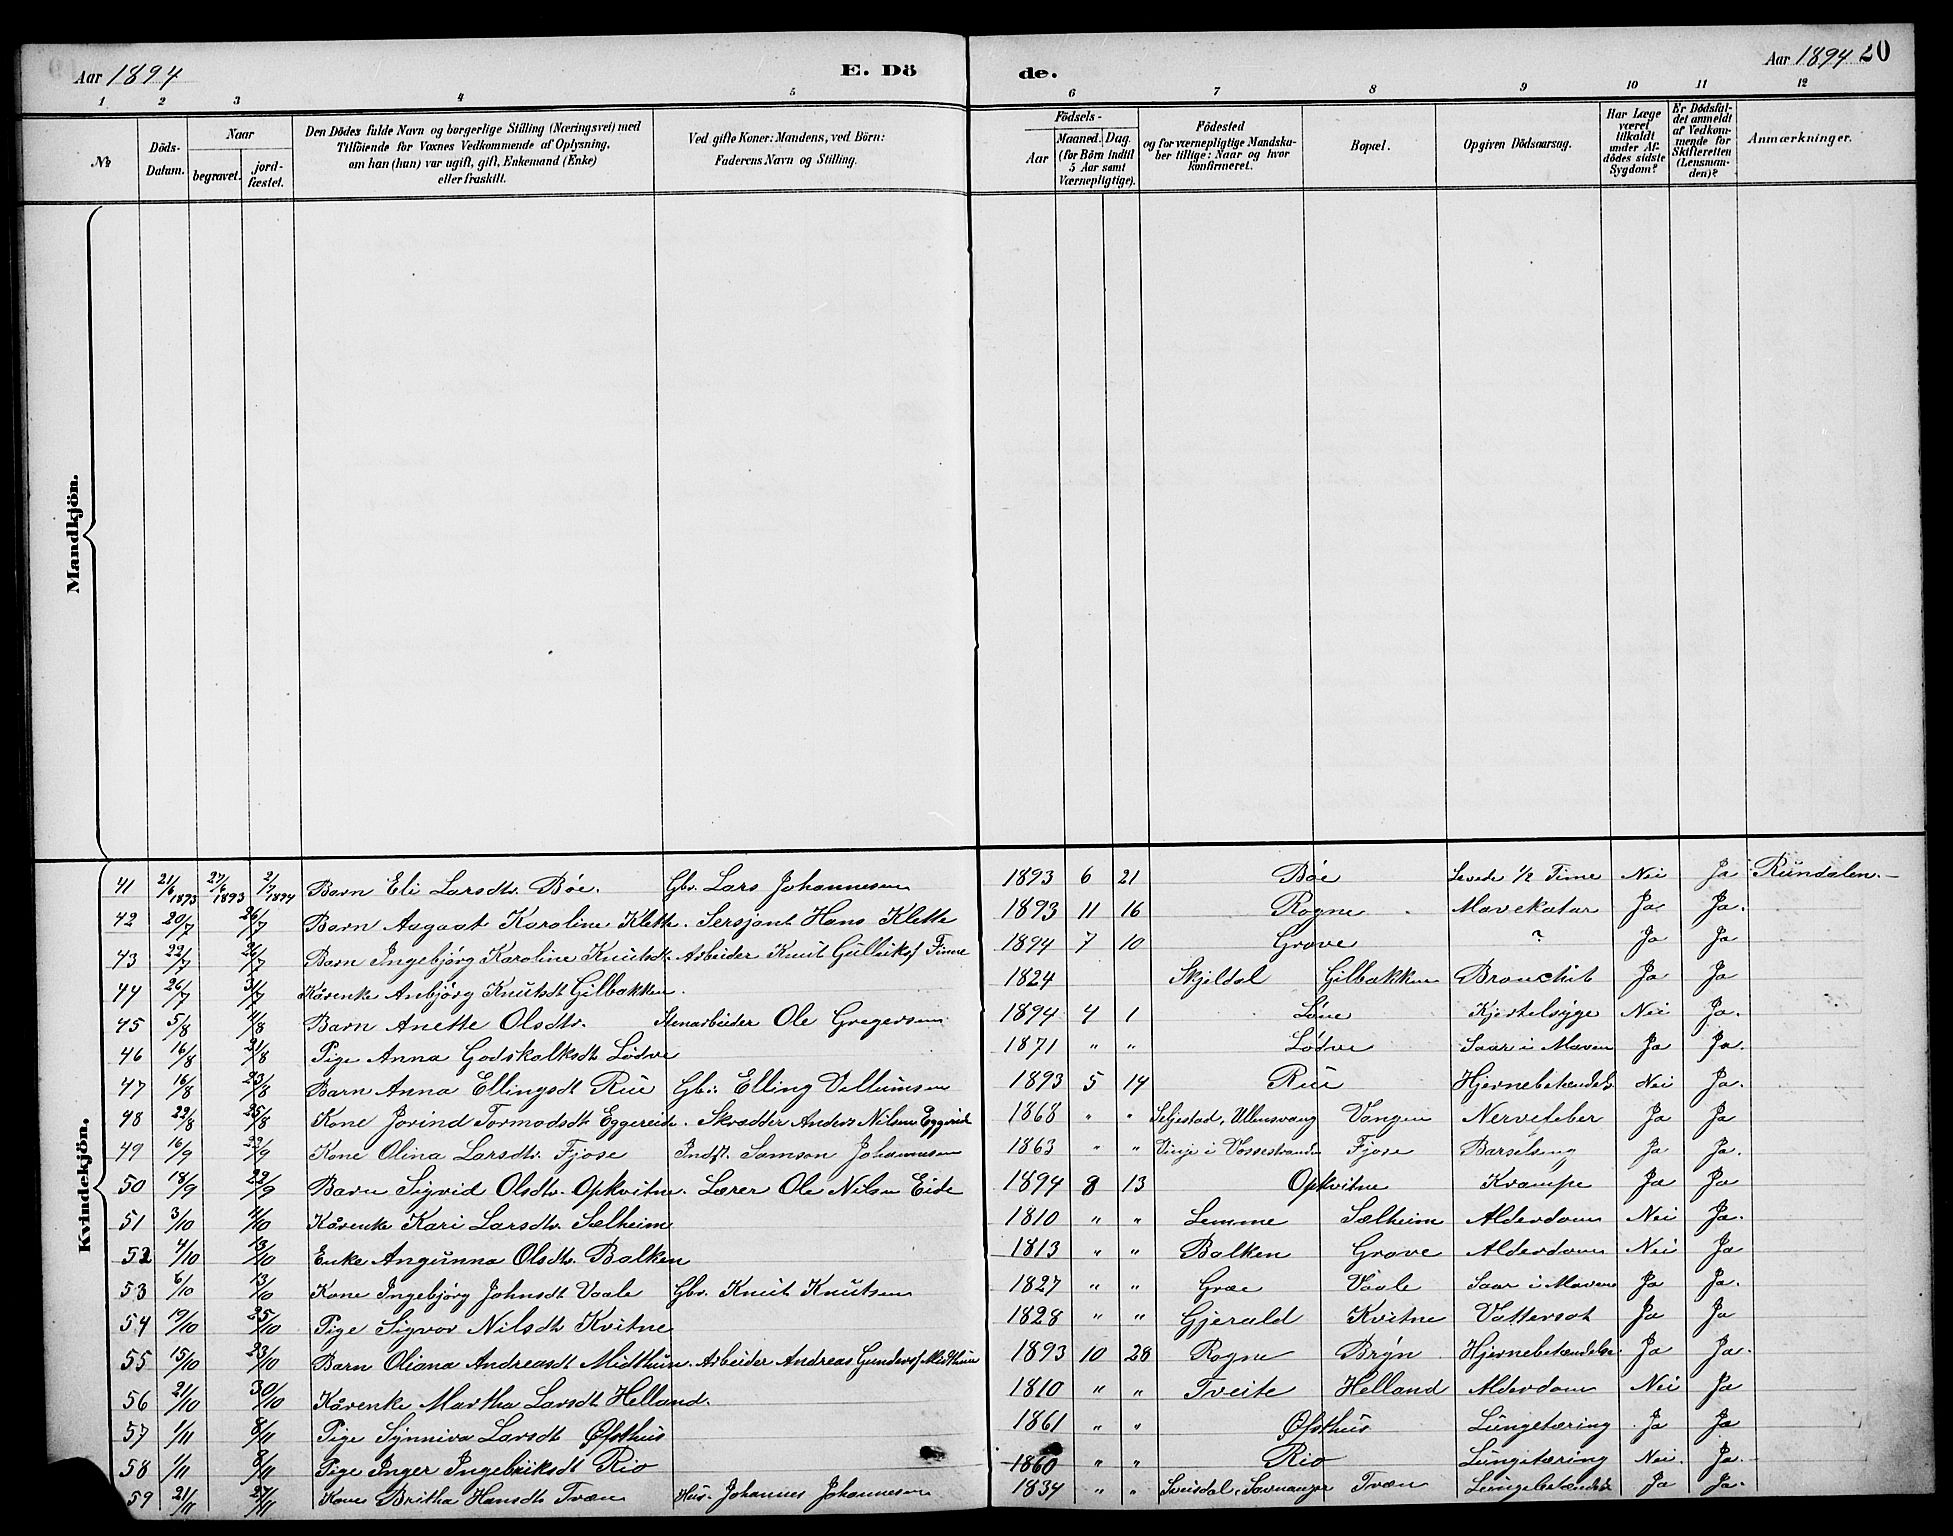 Aar 1894 E. Dö de. Aar 1894 20
1 2 3 4 5 6 7 8 9 10 11 12
No
Döds-Datum.
Naar
begravet. jord-fæstet.
Den Dödes fulde Navn og borgerlige Stilling (Næringsvei) med
Tilföiende for Voxnes Vedkommende af Oplysning,
om han (hun) var ugift, gift, Enkemand (Enke)
eller fraskilt.
Ved gifte Koner: Mandens, ved Börn:
Faderens Navn og Stilling.
Födsels-
Aar Maaned. Dag.
(for Börn indtil
5 Aar samt
Værnepligtige).
Födested
og for værnepligtige Mandska-
ber tillige: Naar og hvor
konfirmeret.
Bopæl.
Opgiven Dödsaarsag.
Har Læge
været
tilkaldt
under Af-
dödes sidste
Sygdom?
Er Dödsfal-
det anmeldt
af Vedkom-
mende for
Skifteretten
(Lensman-
den)?
Anmærkninger.
Mandkjön.
Kvindekjön.
41 21/6 1893 27/6 1893 2/7 1894 Barn Eli Larsdtr. Böe. Gbr. Lars Johannesen 1893 6 21 Böe Levede 1/2 Time Nei Ja Rundalen.
42 20/7 26/7 Barn Aagaat Karoline Klette. Sersjant Hans Klette 1893 11 16 Rogne Mavekatar Ja Ja.
43 22/7 26/7 Barn Ingebjörg Karoline Knutsdt. Arbeider Knut Gulliks/ Finne 1894 7 10 Grove ? Ja Ja
44 26/7 31/7 Kårenke Anbjörg Knutsdt Gilbakken. 1824 Skjeldal Gilbakken Bronchit Ja Ja
45 5/8 /8 Barn Anette Olsdtr. Stenarbeider Ole Gregersen 1894 4 1 Löne Kjertelsyge Nei Ja.
46 16/8 21/8 Pige Anna Godskalksdt Lödve 1871 " " Lödve Saar i Maven Ja Ja.
47 16/8 23/8 Barn Anna Ellingsdt Rue Gbr. Elling Villumsen 1893 5 14 Rue Hjernebetændels. Nei Ja.
48 22/8 25/8 Kone Jorind Tormodsdt Eggereide. Skrædder Anders Nilsen Eggereid 1868 " " Seljestad, Ullensvang Vangen Nervefeber Ja Ja
49 16/9 22/9 Kone Olina Larsdtr. Fjose Indst. Samson Johannesen 1863 " " Vinje i Vossestranden Fjose Barselseng Ja Ja.
50 18/9 22/9 Barn Sigrid Olsdtr. Opkvitne. Lærer Ole Nilsen Eide 1894 8 13 Opkvitne Krampe Ja Ja
51 3/10 /10 Kårenke Kari Larsdtr. Sælheim 1810 " " Lemme Sælheim Alderdom Nei Ja.
52 4/10 13/10 Enke Angunna Olsdtr. Balken 1813 " " Balken Grove Alderdom Nei Ja
53 6/10 13/10 Kone Ingebjörg Johnsdt Vaale Gbr. Knut Knutsen 1827 " " Græe Vaale Saar i Maven Ja Ja.
54 19/10 25/10 Pige Sigvor Nilsdt Kvitne 1828 " " Gjerald Kvitne Vattersot Ja Ja
55 15/10 23/10 Barn Oliana Andreasdt Midthun. Arbeider Andreas Gunders/ Midthun 1893 10 28 Rogne Bryn Hjernebetændelse Ja Ja.
56 21/10 30/10 Kårenke Martha Larsdt Helland. 1810 " " Tveite Helland Alderdom Nei Ja
57 1/11 8/11 Pige Synniva Larsdt Öfsthus 1861 " " Öfsthus Lungetæring Ja Ja
58 1/11 8/11 Pige Inger Ingebriksdt Rio 1860 " " Rio Lungetæring Nei. Ja.
59 21/11 27/11 Kone Britha Hansdt Tvæn Hus. Johannes Johannesen 1834 " " Samnanger Tvæn Lungebetændelse Ja Ja.